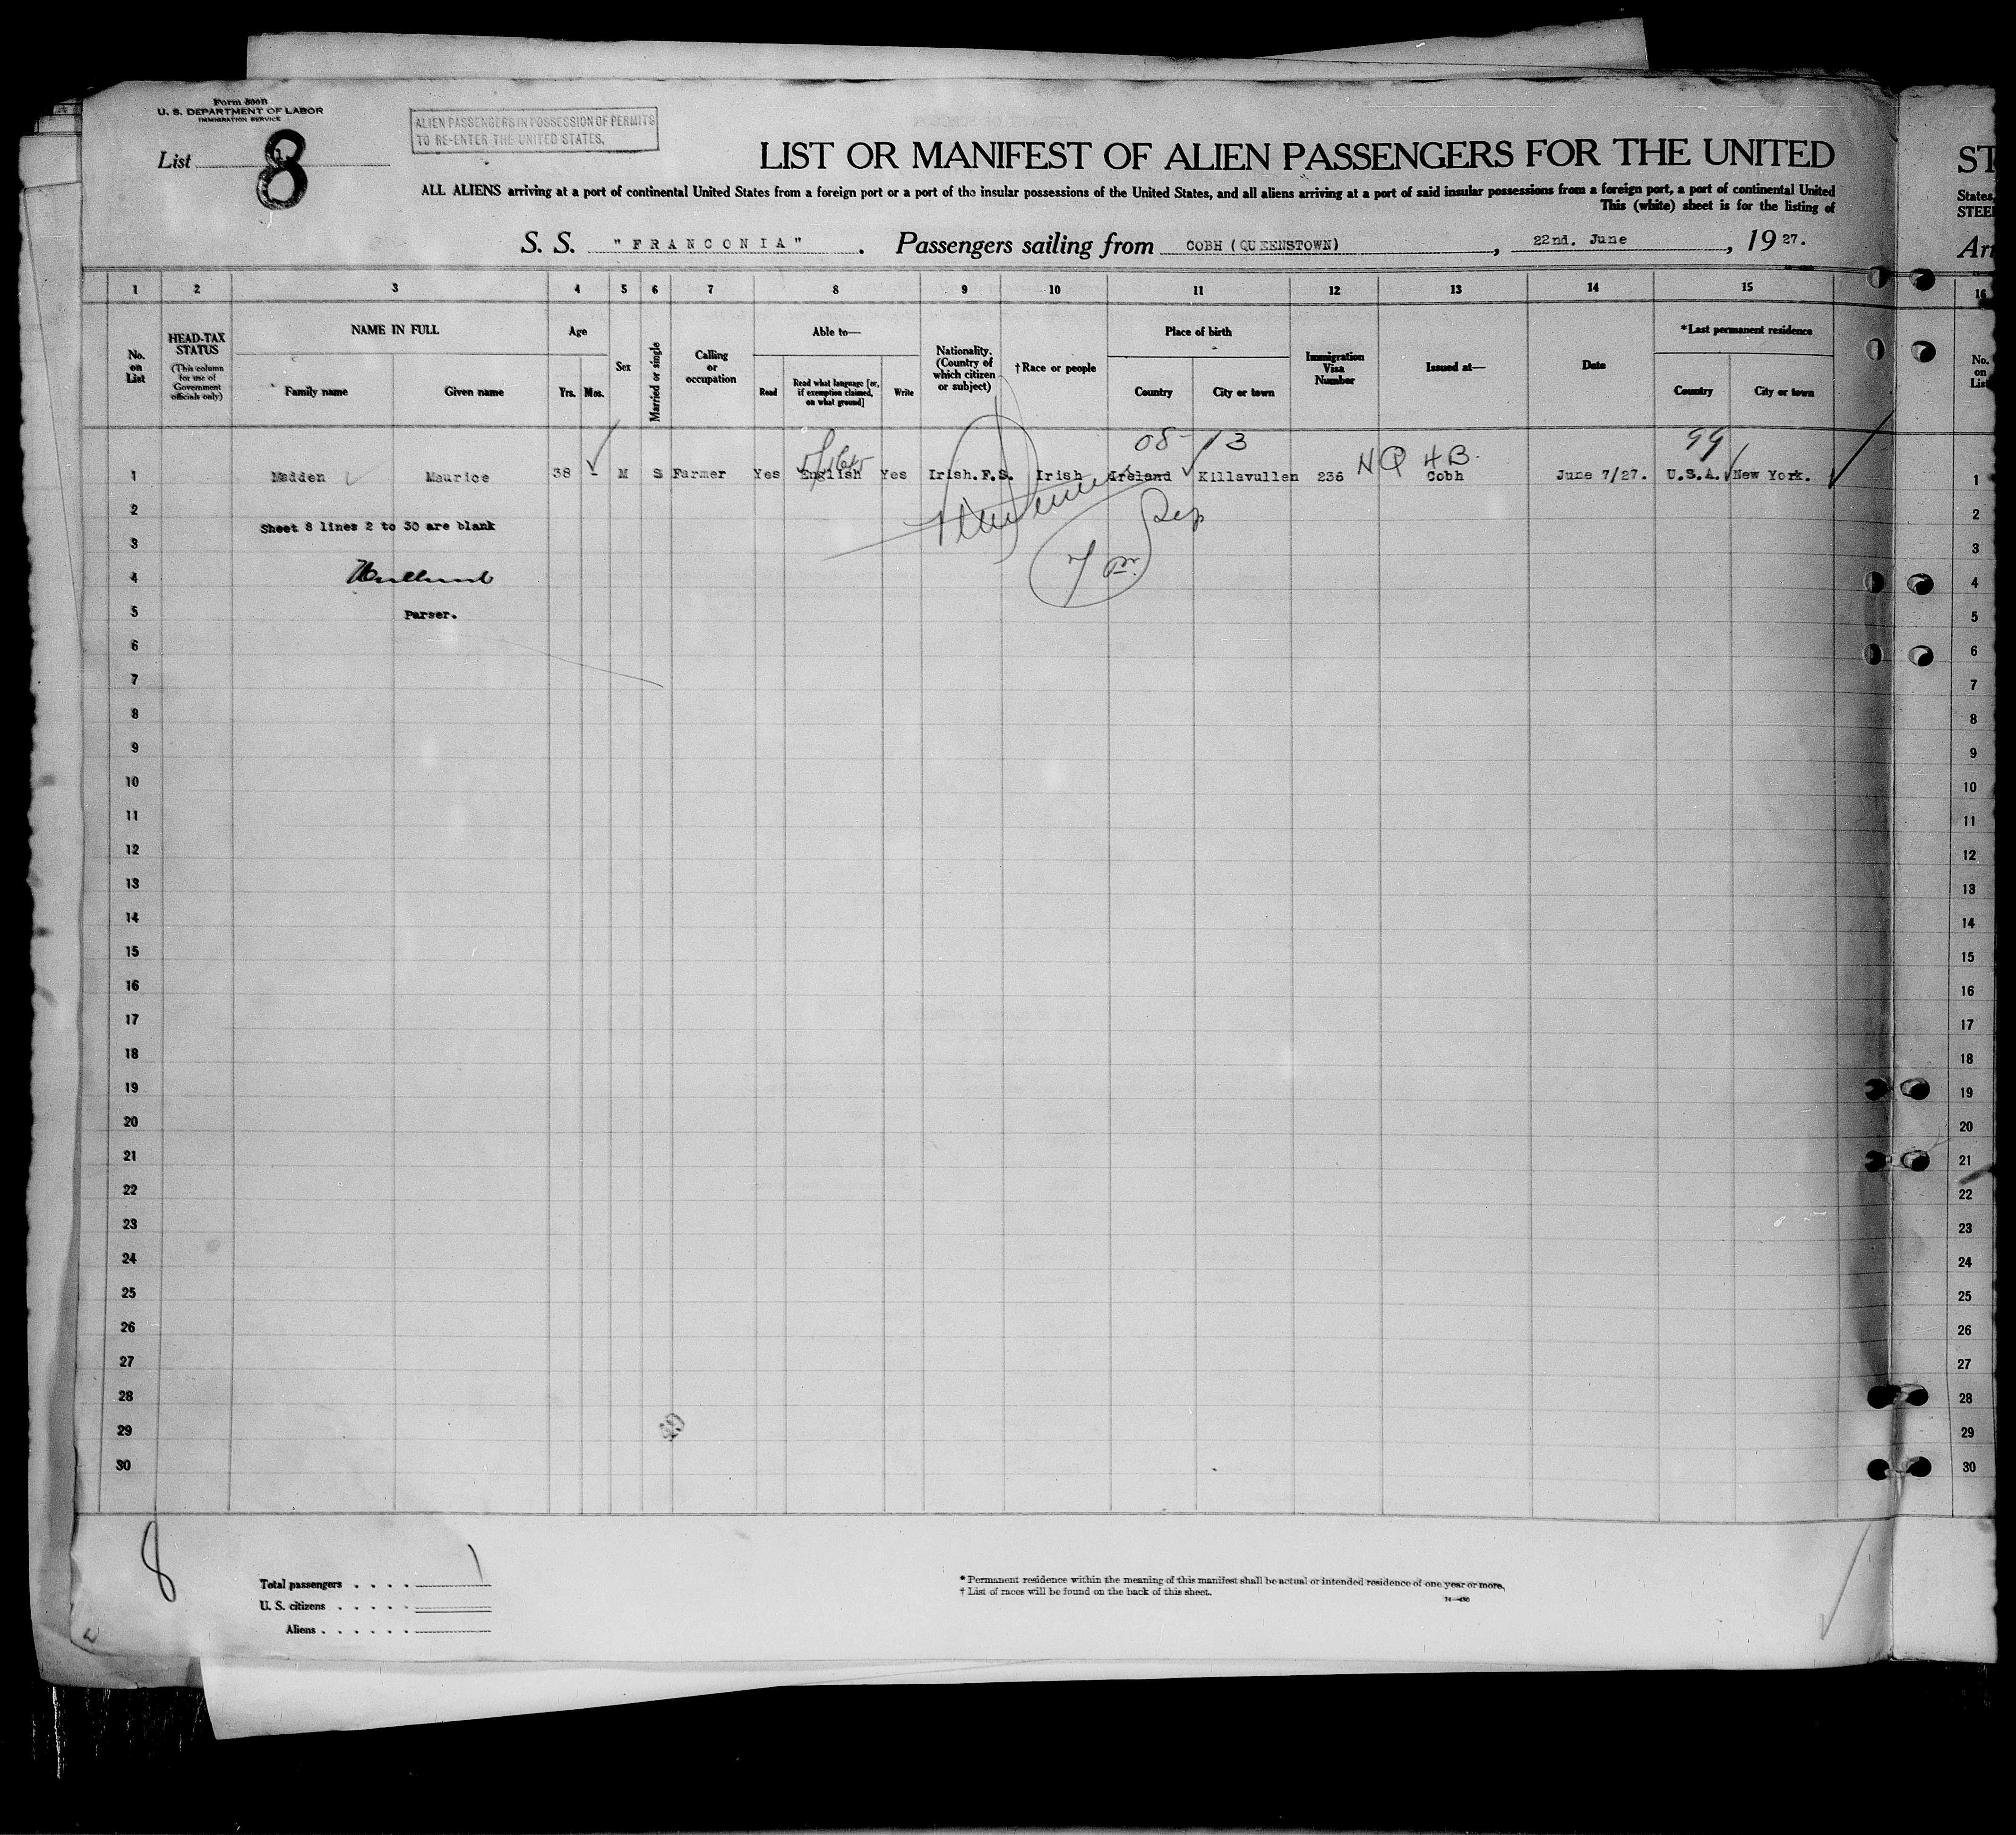 Form 500B
U. S. DEPARTMENT OF LABOR
IMMIGRATION SERVICE
ALIEN PASSENGERS IN POSSESSION OF PERMITS
TO RE-ENTER THE UNITED STATES.
List 8
LIST OR MANIFEST OF ALIEN PASSENGERS FOR THE UNITED
ST
ALL ALIENS arriving at a port of continental United States from a foreign port or a port of the insular possessions of the United States, and all aliens arriving at a port of said insular possessions from a foreign port, a port of continental United
States,
This (white) sheet is for the listing of
STEE
S. S. "FRANCONIA". Passengers sailing from COBH (QUEENSTOWN), 22nd. June, 1927.
Arr
1 2 3 4 5 6 7 8 9 10 11 12 13 14 15 16
No. on List
HEAD-TAX STATUS (This column for use of Government officials only)
NAME IN FULL
Family name Given name
Age
Yrs. Mos.
Sex
Married or single
Calling or occupation
Able to—
Read
Read what language [or, if exemption claimed, on what ground]
Write
Nationality. (Country of which citizen or subject)
†Race or people
Place of birth
Country City or town
Immigration Visa Number
Issued at—
Date
*Last permanent residence
Country City or town
No. on List
08 13 99
NQ 4B.
1 Madden Maurice 38 - M S Farmer Yes English Yes Irish.F.S. Irish Ireland Killavullen 236 Cobh June 7/27. U.S.A. New York. 1
2 2
Sheet 8 lines 2 to 30 are blank
3 3
4 4
5 Parser. 5
6 6
7 7
8 8
9 9
10 10
11 11
12 12
13 13
14 14
15 15
16 16
17 17
18 18
19 19
20 20
21 21
22 22
23 23
24 24
25 25
26 26
27 27
28 28
29 29
30 30
8
Total passengers . . . . 1
U. S. citizens . . . . .
Aliens . . . . . .
* Permanent residence within the meaning of this manifest shall be actual or intended residence of one year or more.
† List of races will be found on the back of this sheet.
14—430